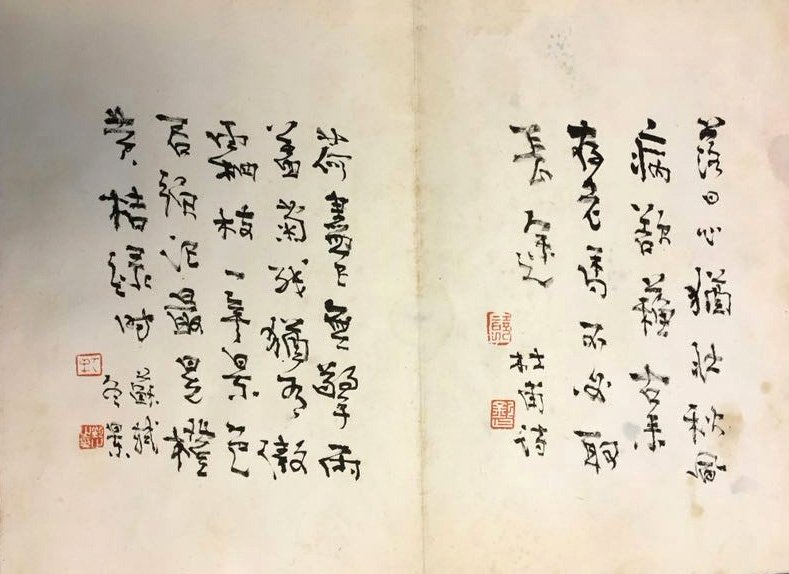 落日心猶壯秋風
病欲蘇古來
存老馬不必取
長途
杜甫詩
荷盡已無擎雨
蓋菊殘猶有傲
霜枝一年好景
君須記最是橙
黃橘綠時
蘇軾
冬景